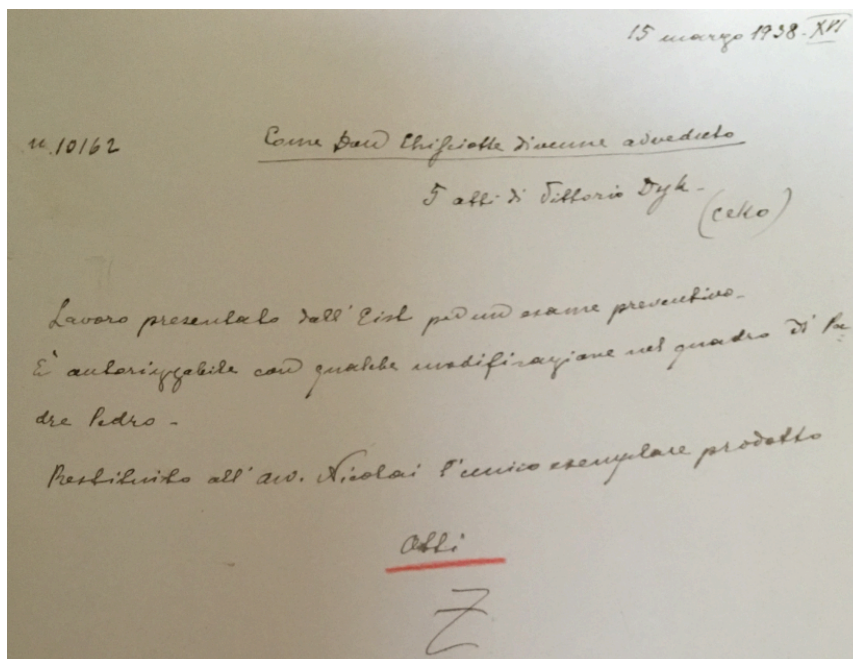 15 marzo 1938-XVI
n. 10162
Come Don Chisciotte divenne avveduto
5 atti di Vittorio Dyk-
(ceko)
Lavoro presentato dall'Eist per un esame preventivo-
È autorizzabile con qualche modificazione nel quadro di Pa=
dre Pedro-
Restituito all'avv. Nicolai l'unico esemplare prodotto
Atti
Z